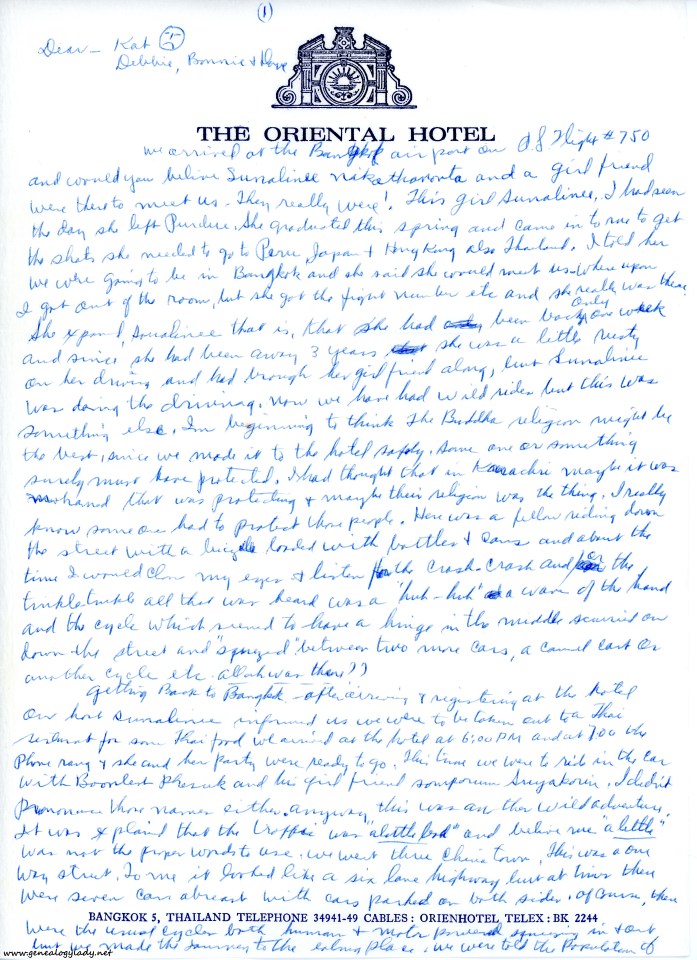 (1)
Dear - Kat
Debbie, Bonnie & Dave
THE ORIENTAL HOTEL
we arrived at the Bangkok air port on Flight # 750
and would you belive Sunalinee and a girl friend
were there to meet us - They really were! This girl Sunalinee, I had seen
the day she left Purdue. She graduated this spring and came in to me to get
the shots she needed to go to Peru, Japan & Hong Kong also Thailand. I told her
we were going to be in Bangkok and she said she would meet us - where upon
I got out of the room, but she got the flight number etc and she really was there.
She explained, Sunalinee that is, that she had been back only one week
and since she had been away 3 years she was a little rusty
on her driving and had brough her girl friend along, but Sunalinee
was doing the driving. Now we have had wild rides but this was
something else. I'm beginning to think the Buddha religion might be
the best, since we made it to the hotel safely. Some one or something
surely must have protected. I had thought that in Karachi maybe it was
that was protecting & maybe their religion was the thing. I really
know some one had to protect those people. Here was a fellow riding down
the street with a bicycle loaded with bottles & cans and about the
time I would close my eyes & listen for the crash-crash and for the
tinkle tinkle all that was heard was a "huh-huh" & a wave of the hand
and the cycle which seemed to have a hinge in the middle scurried on
down the street and between two more cars, a camel cart or
another cycle etc. allah was there??
Getting Back to Bangkok - after arriving & registering at the hotel
Our host Sunalinee informed us we were to be taken out to a Thai
for some Thai food we arrived at the hotel at 6:00 PM and at 7:00 the
Phone rang & she and her party were ready to go. This time we were to ride in the car
with and his girl friend. I didn't
pronounce those names either. anyway, this was another wild adventure.
It was explaind that the traffic was "a little bad" and belive me "a little"
was not the proper words to use. we went three China town. This was a one
way street. To me it looked like a six lane highway but at times there
were seven cars abreast with cars parked on both sides. Of course, there
BANGKOK 5, THAILAND TELEPHONE 34941-49 CABLES: ORIENHOTEL TELEX: BK 2244
were the usual cycles both human & motor powered in & out
but we made the journey to the eating place. We were told the Population of
www.genealogylady.net